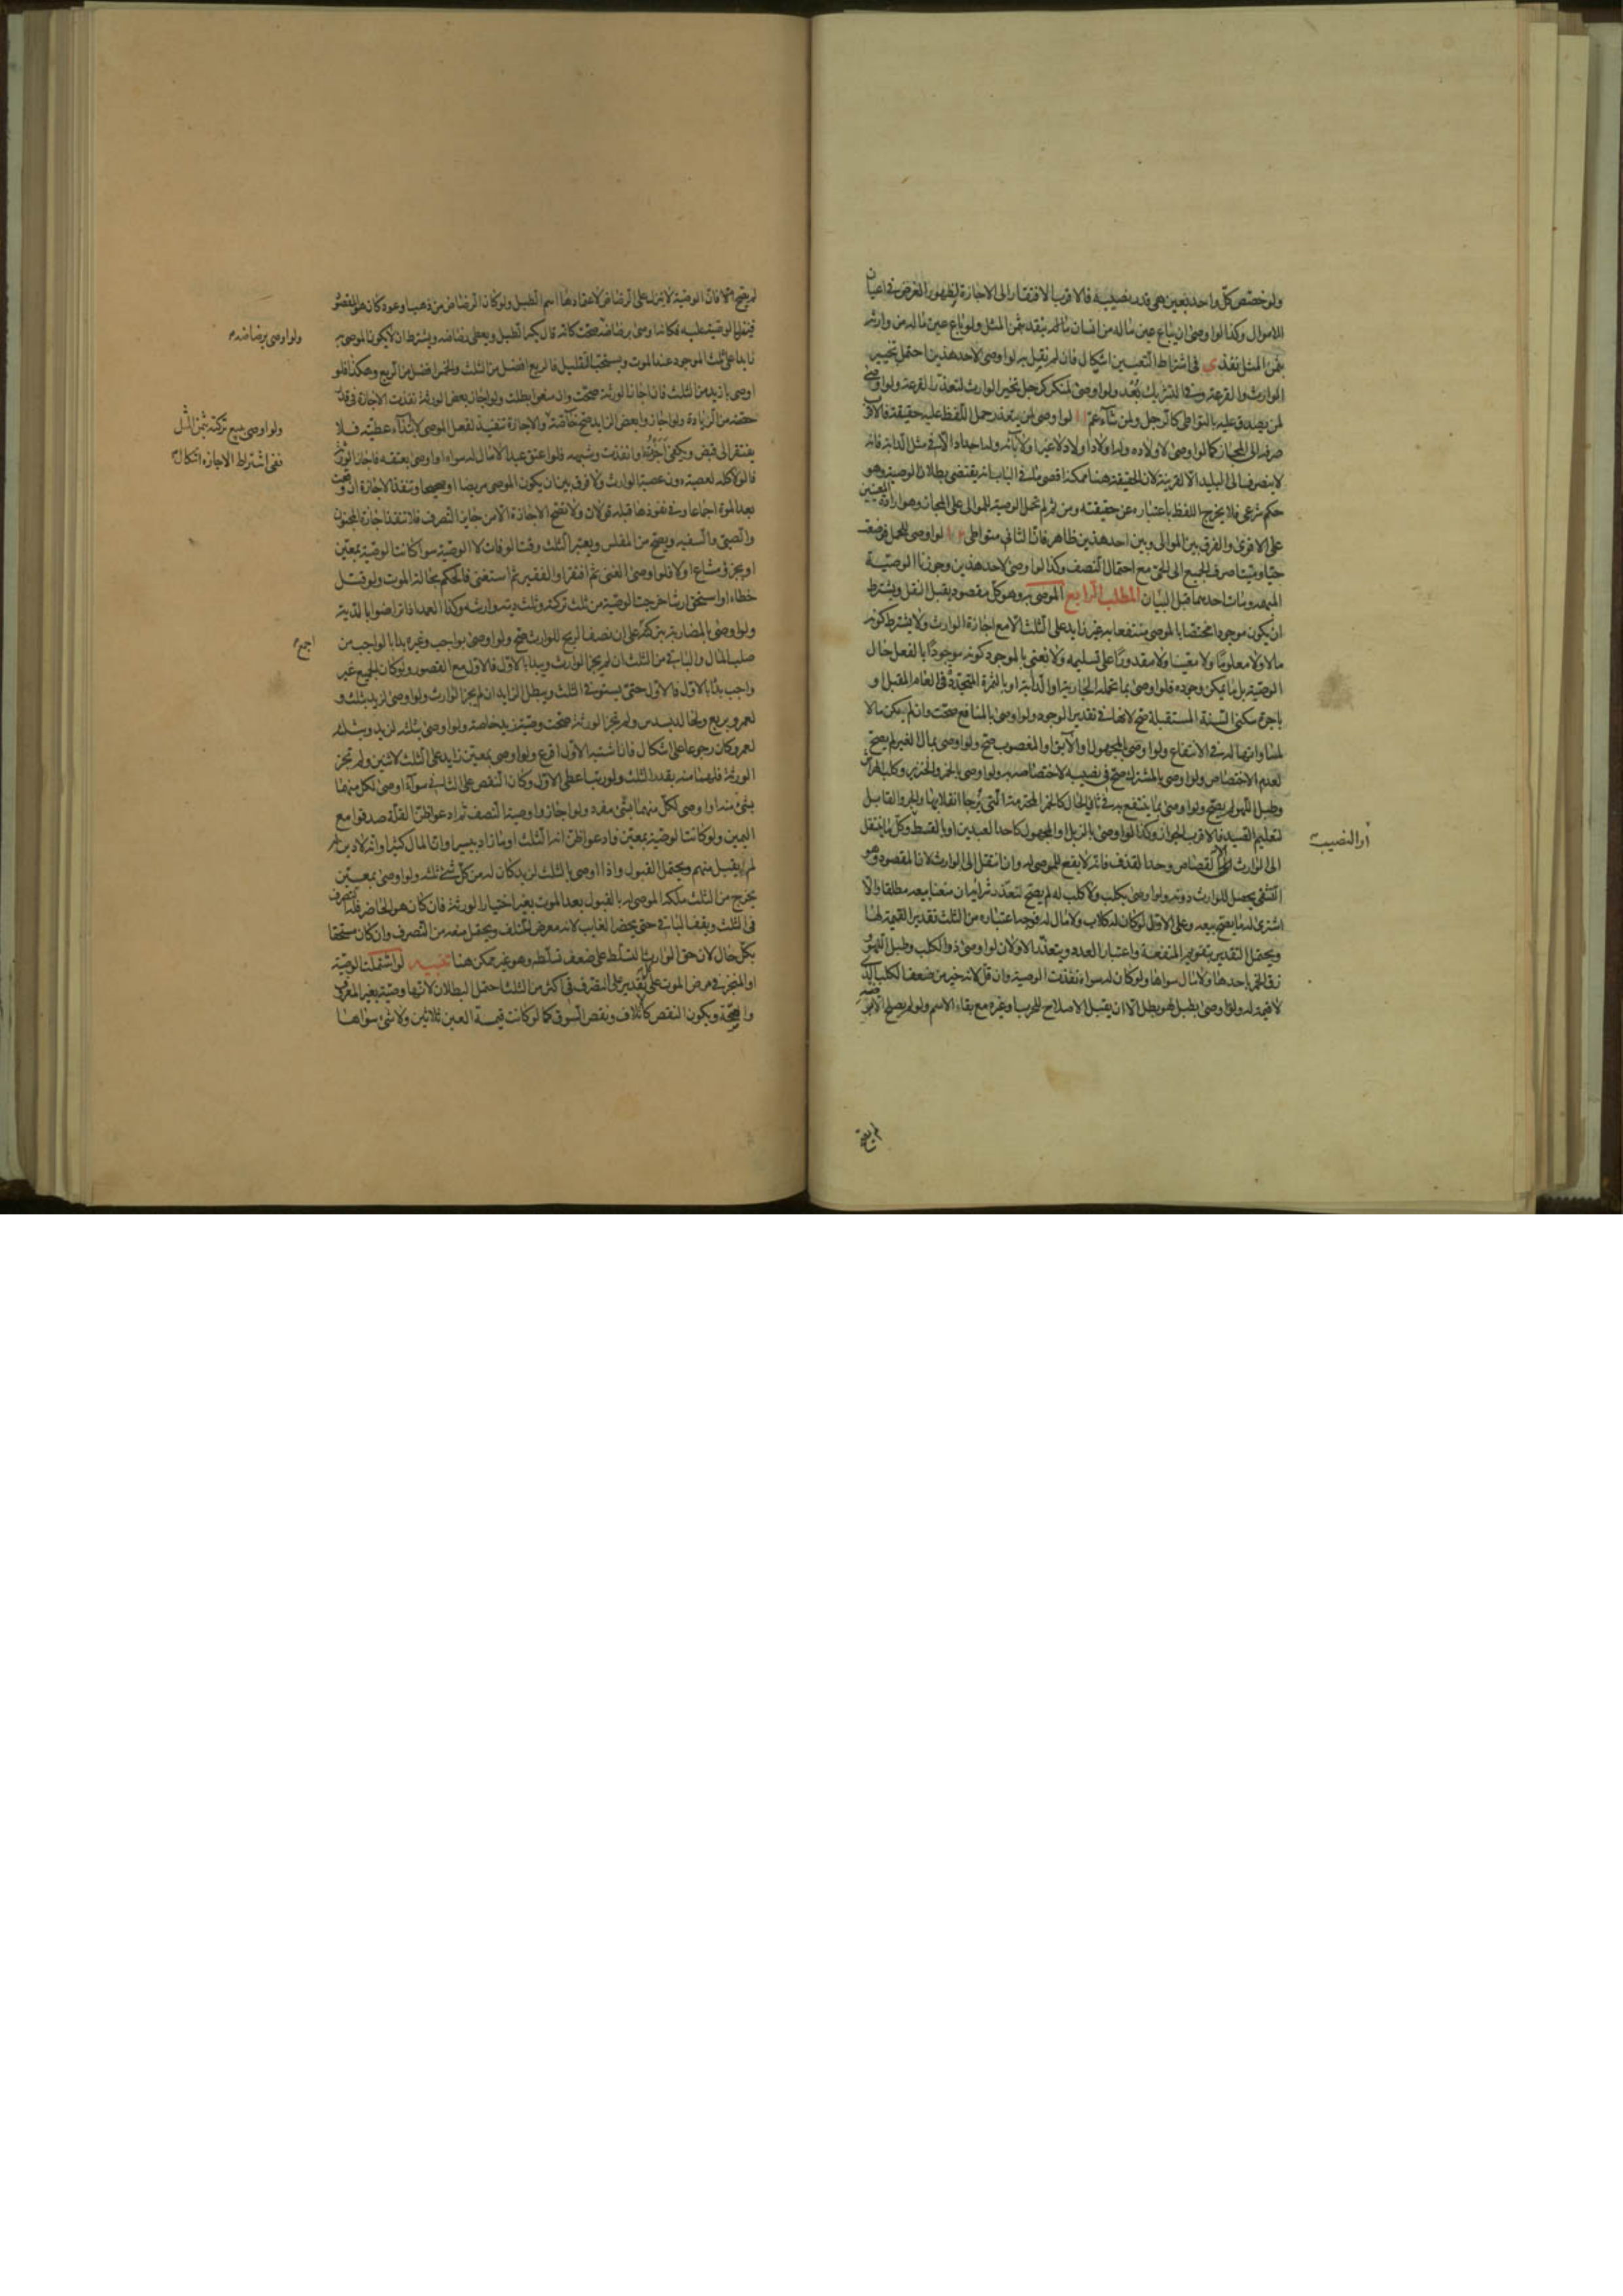 ولو خصّص كلّ واحد بعين هي قدر نصيبه فالاقرب الافتقار الى الاجازة لظهور الغرض في اعيان
الاموال وكذا لو اوصى ان يباع عين ماله من انسان بثمن المثل ولو باع عين ماله من وارثه
بثمن المثل نفذ ي في اشتراط التعيين اشكال فان لم نقل به لو اوصى لاحد هذين احتمل تخيير
الوارث والقرعة وفي التشريك بُعد ولو اوصى لمنكر كرجل تخير الوارث لتعذر القرعة ولو اوصى
لمن يصدق عليه بالتواطى كالرجل ولمن شاء عمّ يا لو اوصى لمن يتعذر حمل اللفظ عليه حقيقة فالاقرب
صرفه الى المجاز كما لو اوصى لاولاده وله اولاد اولاد لا غير او لابائه وله اجداد
لا ينصرف الى البليد الا لقرينة لان الحقيقة هنا ممكنة اقصى ما في الباب انه يقتضى بطلان الوصية وهو
حكم شرعى فلا يخرج اللفظ باعتباره عن حقيقته ومن ثم لم تحمل الوصية للموالى على المجاز وهو ارادة المعينين
على الاقوى والفرق بين الموالى وبين احد هذين ظاهر فان الثانى متواطى يب لو اوصى للحمل فوضعت
حيا وميتا صرف الجميع الى الحى مع احتمال النصف وكذا لو اوصى لاحد هذين وجوزنا الوصية
المبهمة ومات احدهما قبل البيان المطلب الرابع الموصى به وهو كل مقصود يقبل النقل ويشترط
ان يكون موجودا مختصا بالموصى منتفعا به غير زايد على الثلث الا مع اجازة الوارث ولا يشترط كونه
مالا ولا معلوما ولا معينا ولا مقدورا على تسليمه ولا نعنى بالموجود كونه موجودا بالفعل حال
الوصية بل ما يمكن وجوده فلو اوصى بما تحمله الجارية او الدابة او بالثمرة المتجددة في العام المقبل و
باجرة سكنى السنة المستقبلة صح لانها في تقدير الوجود ولو اوصى بالمنافع صحت وان لم يكن مالا
لمساواتها له في الانتفاع ولو اوصى بالمجهول او الآبق او المغصوب صح ولو اوصى بمال الغير لم يصح
لعدم الاختصاص ولو اوصى بالمشترك صح في نصيبه لاختصاصه به ولو اوصى بالخمر والخنزير وكلب الهراش
وطبل اللهو لم يصح ولو اوصى بما ينتفع به في ثاني الحال كالخمر المحترمة التى يُرجا انقلابها والجرو القابل
لتعليم الصيد فالاقرب الجواز وكذا لو اوصى بالزبل او المجهول كاحد العبدين او بالقسط وكل ما ينتقل
الى الوارث الا القصاص وحد القذف فانه لا يقع للموصى له وان انتقل الى الوارث لان المقصود وهو
التشفى يحصل للوارث دونه ولو اوصى بكلب ولا كلب له لم يصح لتعذر شرائه ان منعنا بيعه مطلقا والا
اشترى له ما يصح بيعه وعلى الاول لو كان له كلاب ولا مال له فوجه اعتباره من الثلث تقدير القيمة لها
ويحتمل التقدير بتقويم المنفعة واعتبار العدد ويتعذر الاولان لو اوصى ذو الكلب وطبل اللهو و
زق الخمر باحدها ولا مال سواها ولو كان له سواه نفذت الوصية وان قل لانه خير من ضعف الكلب الذى
لا قيمة له ولو اوصى بطبل لهو بطل الا ان يقبل الاصلاح للحرب او غيره مع بقاء الاسم ولو لم يصلح الا برضه
لم يصح
او النصيب
لم يصح الا فان الوصية لا تنزل على الرضاض لاعتمادها اسم الطبل ولو كان الرضاض من ذهب او عود كان هو المقصود
فينزل الوصية عليه فكانما اوصى برضاضه صحت كانه قال يكسر الطبل ويعطى رضاضه ويشترط ان لا يكون الموصى به
زايدا على ثلث الموجود عند الموت ويستحب التقليل فالربع افضل من الثلث والخمس افضل من الربع وهكذا فلو
اوصى بازيد من الثلث فان اجاز الورثة صحت وان منعوا بطلت ولو اجاز بعض الورثة نفذت الاجازة فى قدر
حصته من الزيادة ولو اجازوا بعض الزايد صح خاصة والاجازة تنفيذ لفعل الموصى لا ابتداء عطية فلا
يفتقر الى قبض ويكفى اجزت وانفذت وشبهه فلو اعتق عبدا لا مال له سواه او اوصى بعتقه فاجاز الورثة
فالولاء كله لعصبته دون عصبة الوارث ولا فرق بين ان يكون الموصى مريضا او صحيحا وتنفذ الاجازة ان وقعت
بعد الموت اجماعا وفي نفوذها قبله قولان ولا تصح الاجازة الا من جايز التصرف فلا تنفذ اجازة المجنون
والصبى والسفيه ويصح من المفلس ويعتبر الثلث وقت الوفاة لا الوصية سواء كانت الوصية بمعين
او بجزء مشاع او لا فلو اوصى الغنى ثم افتقر او الفقير ثم استغنى فالحكم بحالة الموت ولو قتل
خطاء او استحق ارشا خرجت الوصية من ثلث تركته وثلث ديته وارشه وكذا العمد اذا تراضوا بالدية
ولو اوصى بالمضاربة بتركته على ان نصف الربح للوارث صح ولو اوصى بواجب وغيره بدا بالواجب من
صلب المال والباقى من الثلث ان لم يجز الوارث ويبدا بالاول فالاول مع القصور ولو كان الجميع غير
واجب بدا بالاول فالاول حتى يستوفى الثلث ويبطل الزايد ان لم يجز الوارث ولو اوصى لزيد بثلث و
لعمرو بربع ولخالد بسدس ولم تجز الورثة صحت وصية زيد خاصة ولو اوصى بثلثه لزيد وبثلثه
لعمرو كان رجوعا على اشكال فان اشتبه الاول اقرع ولو اوصى بمعين زايد على الثلث لاثنين ولم تجز
الورثة فلهما منه بقدر الثلث ولو رتب اعطى الاول وكان النقص على الثانى سواء اوصى لكل منهما
بشئ منه او اوصى لكل منهما بشئ مفرد ولو اجازوا وصية النصف ثم ادعوا ظن القلة صدقوا مع
اليمين ولو كانت الوصية بمعين فادعوا ظن انه الثلث او ما زاد بيسير او ان المال كثير او انه لا دين له
لم يقبل منهم ويحتمل القبول واذا اوصى بالثلث لزيد كان له من كل شئ ثلثه ولو اوصى بمعين
يخرج من الثلث ملكه الموصى له بالقبول بعد الموت بغير اختيار الورثة فان كان هو الحاضر فله التصرف
فى الثلث ويقف الباقى حتى يحضر الغايب لانه معرض للتلف ويحتمل منعه من التصرف وان كان مستحقا
بكل حال لان حق الوارث التسلط على ضعف تسلطه وهو غير ممكن هنا تنبيه لو اشتملت الوصية
او المنجز فى مرض الموت على تقدير على التصرف فى اكثر من الثلث احتمل البطلان لانها وصية بغير المعروف
والصحة ويكون النقص كاتلاف ونقص السوق كما لو كانت قيمة العين ثلاثين ولا شئ سواها
ولو اوصى برضاضه
ولو اوصى ببيع تركته بثمن المثل
ففى اشتراط الاجازه اشكال
اجمع